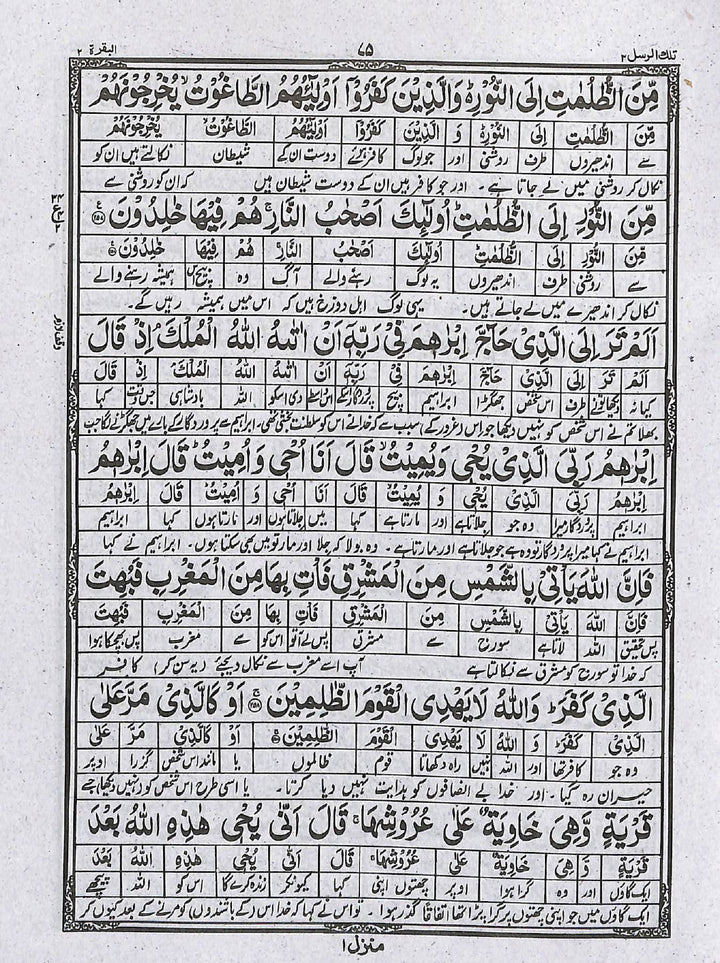 تلك الرسل ۳
۷۵
البقرة ۲
مِّنَ الظُّلُمٰتِ اِلَى النُّوْرِ۬ؕ وَالَّذِيْنَ كَفَرُوْۤا اَوْلِيٰٓـُٔهُمُ الطَّاغُوْتُ ۙ يُخْرِجُوْنَهُمْ
مِّنَ الظُّلُمٰتِ اِلَى النُّوْرِ وَ الَّذِيْنَ كَفَرُوْۤا اَوْلِيٰٓـُٔهُمُ الطَّاغُوْتُ يُخْرِجُوْنَهُمْ
سے اندھیروں طرف روشنی اور جو لوگ کافر ہوئے دوست ان کے شیطان نکالتے ہیں ان کو
نکال کر روشنی میں لے جاتا ہے۔ اور جو کافر ہیں ان کے دوست شیطان ہیں کہ ان کو روشنی سے
مِّنَ النُّوْرِ اِلَى الظُّلُمٰتِ ؕ اُولٰٓئِكَ اَصْحٰبُ النَّارِ ۚ هُمْ فِيْهَا خٰلِدُوْنَ
مِّنَ النُّوْرِ اِلَى الظُّلُمٰتِ اُولٰٓئِكَ اَصْحٰبُ النَّارِ هُمْ فِيْهَا خٰلِدُوْنَ
سے روشنی طرف اندھیروں یہ لوگ رہنے والے آگ وہ بیچ اس ہمیشہ رہنے والے
نکال کر اندھیرے میں لے جاتے ہیں۔ یہی لوگ اہل دوزخ ہیں کہ اس میں ہمیشہ رہیں گے۔
اَلَمْ تَرَ اِلَى الَّذِيْ حَآجَّ اِبْرٰهٖمَ فِيْ رَبِّهٖۤ اَنْ اٰتٰىهُ اللّٰهُ الْمُلْكَ ۘ اِذْ قَالَ
اَلَمْ تَرَ اِلَى الَّذِيْ حَآجَّ اِبْرٰهٖمَ فِيْ رَبِّهٖۤ اَنْ اٰتٰىهُ اللّٰهُ الْمُلْكَ اِذْ قَالَ
کیا نہ دیکھا تونے طرف اس شخص جھگڑا ابراہیم بیچ پروردگار اسکے اس واسطے دی اسکو اللہ بادشاہی جس وقت کہا
بھلا تم نے اس شخص کو نہیں دیکھا جو اس (غرور کے) سبب سے کہ خدا نے اس کو سلطنت بخشی تھی۔ ابراہیم سے پروردگار کے بارے میں جھگڑنے لگا جب
اِبْرٰهٖمُ رَبِّيَ الَّذِيْ يُحْيٖ وَيُمِيْتُ ۙ قَالَ اَنَا اُحْيٖ وَاُمِيْتُ ؕ قَالَ اِبْرٰهٖمُ
اِبْرٰهٖمُ رَبِّيَ الَّذِيْ يُحْيٖ وَ يُمِيْتُ قَالَ اَنَا اُحْيٖ وَ اُمِيْتُ قَالَ اِبْرٰهٖمُ
ابراہیم پروردگار میرا وہ جو جلاتا ہے اور مارتا ہے کہا میں جلاتا ہوں اور مارتا ہوں کہا ابراہیم
ابراہیم نے کہا میرا پروردگار تو وہ ہے جو جلاتا ہے اور مارتا ہے۔ وہ بولا کہ جلا اور مار تو میں بھی سکتا ہوں۔ ابراہیم نے کہا
فَاِنَّ اللّٰهَ يَاْتِيْ بِالشَّمْسِ مِنَ الْمَشْرِقِ فَاْتِ بِهَا مِنَ الْمَغْرِبِ فَبُهِتَ
فَاِنَّ اللّٰهَ يَاْتِيْ بِالشَّمْسِ مِنَ الْمَشْرِقِ فَاْتِ بِهَا مِنَ الْمَغْرِبِ فَبُهِتَ
پس تحقیق اللہ لاتا ہے سورج سے مشرق پس لے آتو اس کو سے مغرب پس بھچکا ہوا
کہ خدا تو سورج کو مشرق سے نکالتا ہے آپ اسے مغرب سے نکال دیجئے (یہ سن کر) کافر
الَّذِيْ كَفَرَ ؕ وَاللّٰهُ لَا يَهْدِي الْقَوْمَ الظّٰلِمِيْنَ ۚ اَوْ كَالَّذِيْ مَرَّ عَلٰى
الَّذِيْ كَفَرَ وَ اللّٰهُ لَا يَهْدِي الْقَوْمَ الظّٰلِمِيْنَ اَوْ كَالَّذِيْ مَرَّ عَلٰى
وہ جو کافر تھا اور اللہ نہیں راہ دکھاتا قوم ظالموں یا مانند اس شخص گزرا اوپر
حیران رہ گیا۔ اور خدا بے انصافوں کو ہدایت نہیں دیا کرتا۔ یا اسی طرح اس شخص کو (نہیں دیکھا) جسے
قَرْيَةٍ وَّهِيَ خَاوِيَةٌ عَلٰى عُرُوْشِهَا ۚ قَالَ اَنّٰى يُحْيٖ هٰذِهِ اللّٰهُ بَعْدَ
قَرْيَةٍ وَّ هِيَ خَاوِيَةٌ عَلٰى عُرُوْشِهَا قَالَ اَنّٰى يُحْيٖ هٰذِهِ اللّٰهُ بَعْدَ
ایک گاؤں اور وہ گرا ہوا اوپر چھتوں اپنی کہا کیونکر زندہ کرے گا اس کو اللہ پیچھے
ایک گاؤں میں جو اپنی چھتوں پر گرا پڑا تھا اتفاقاً گذر ہوا۔ تو اس نے کہا کہ خدا اس (کے باشندوں) کو مرنے کے بعد کیوں کر
منزل ۱